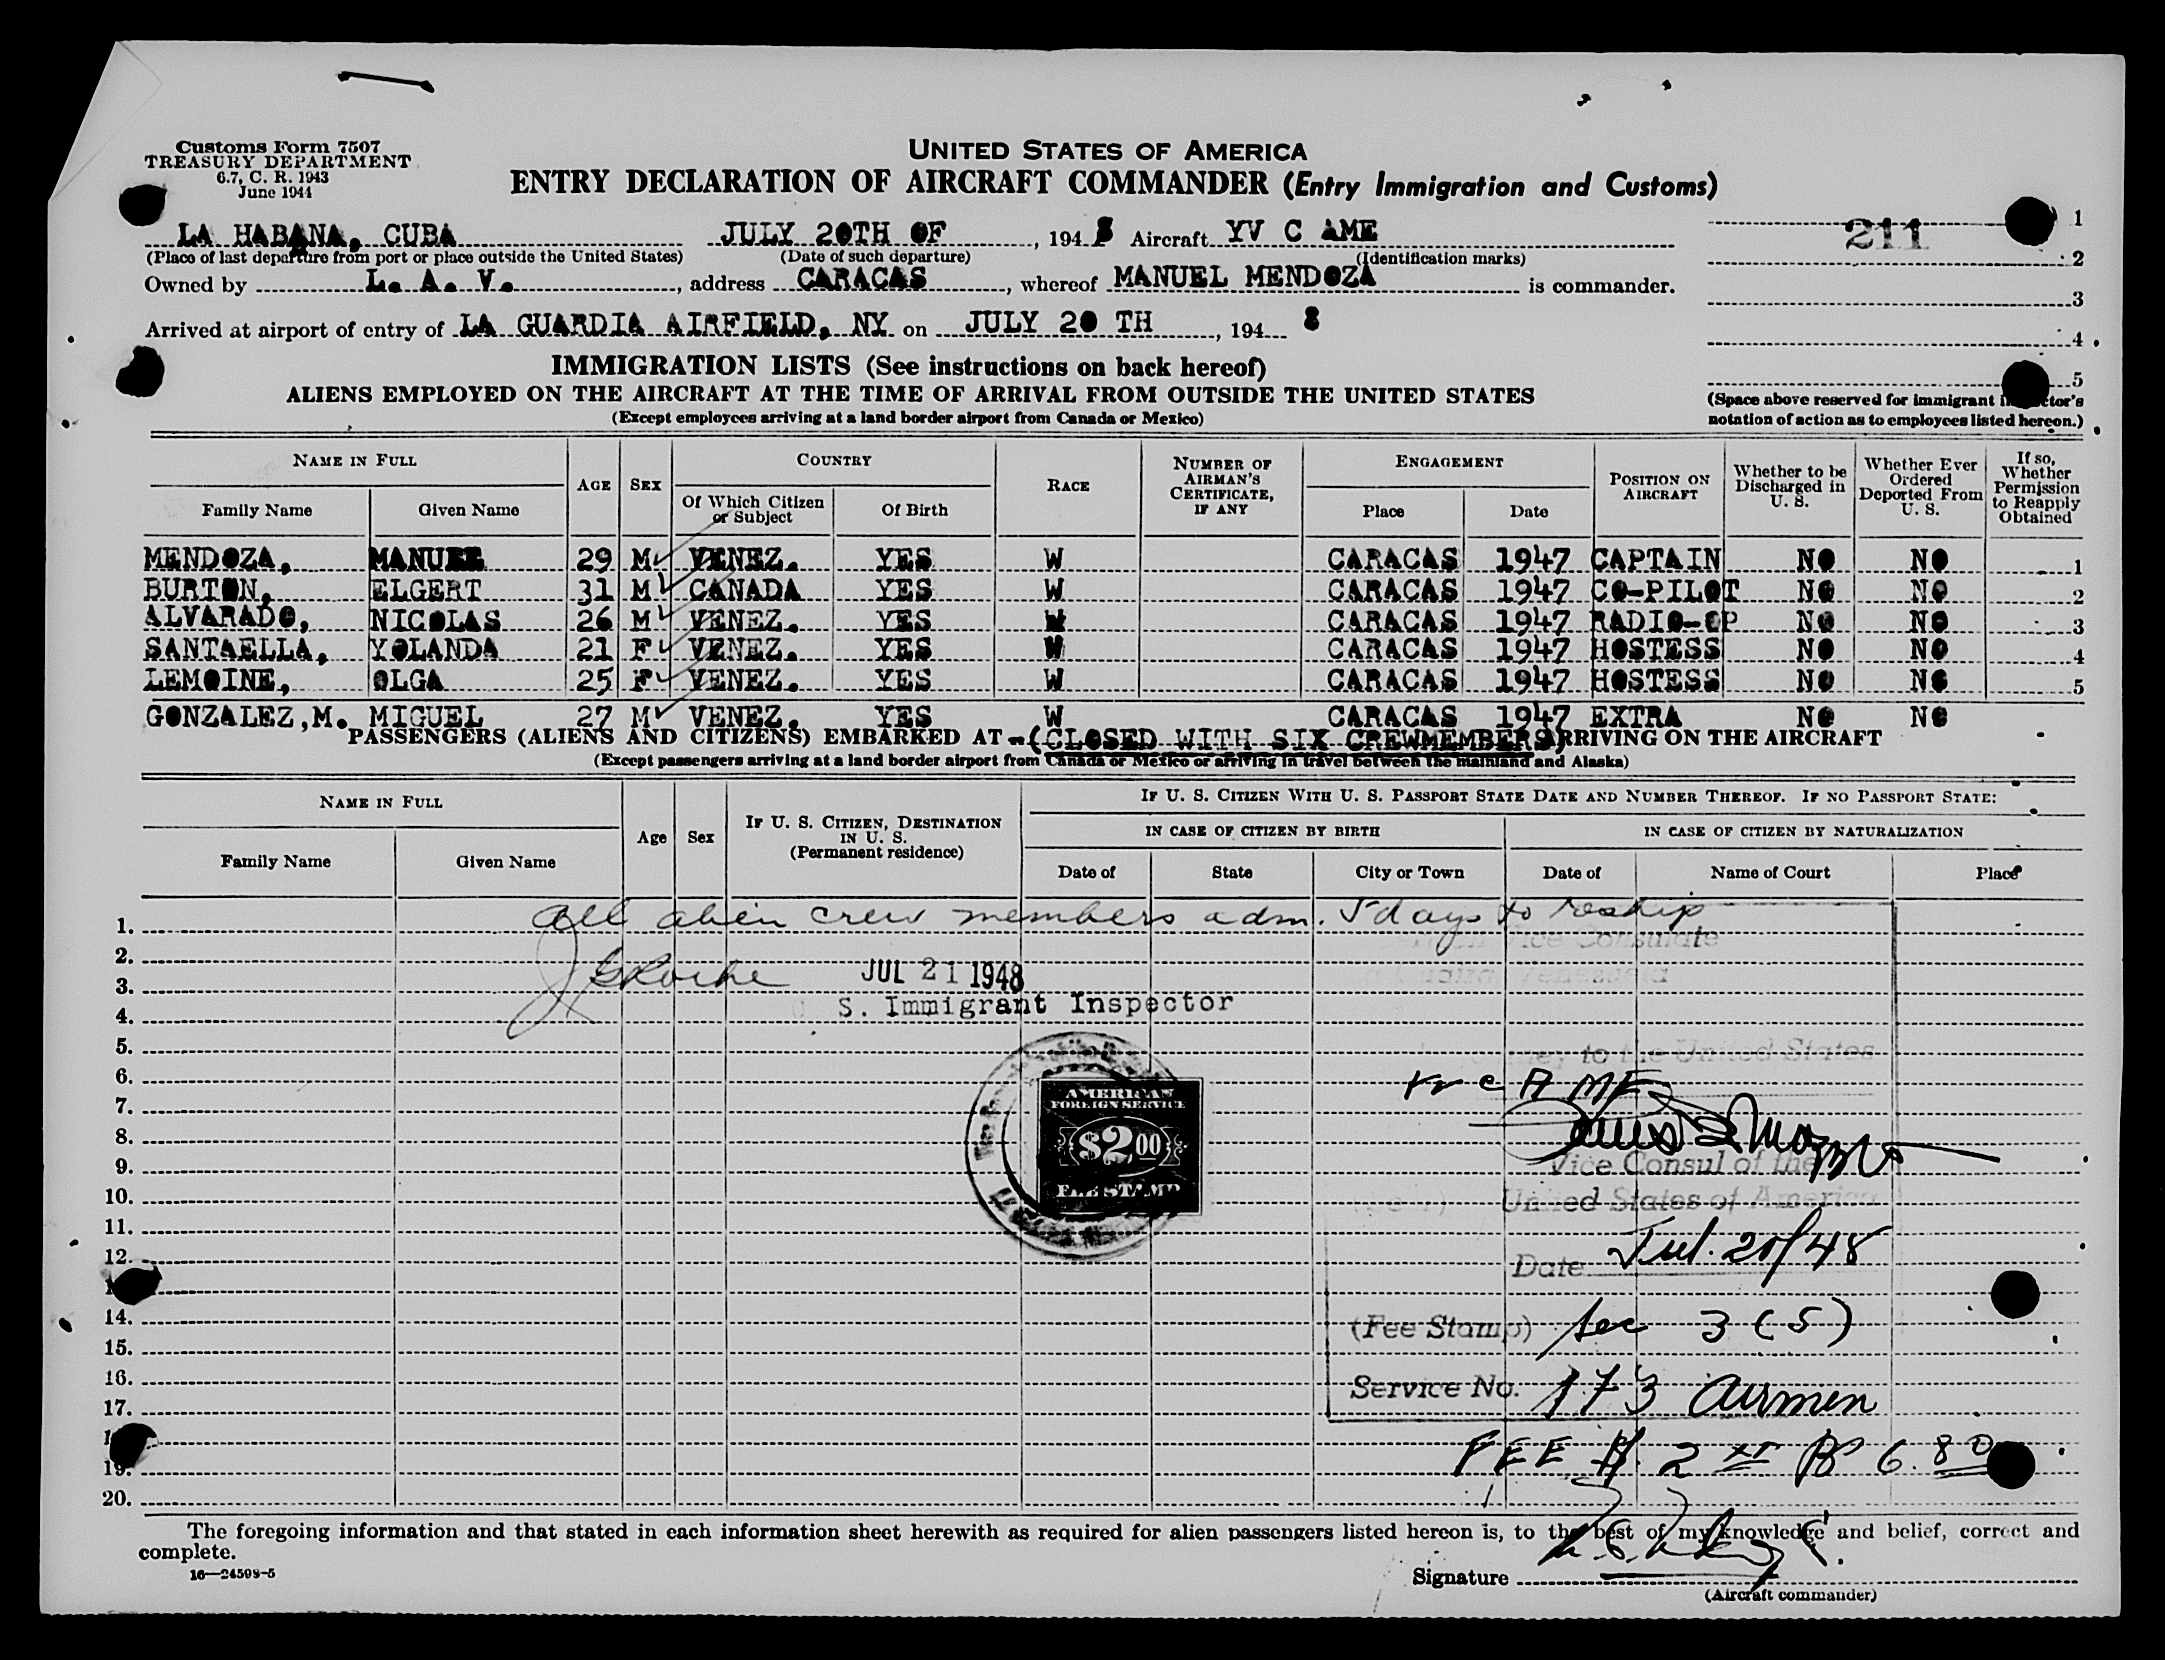 Customs Form 7507
TREASURY DEPARTMENT
6.7, C. R. 1943
June 1944
UNITED STATES OF AMERICA
ENTRY DECLARATION OF AIRCRAFT COMMANDER (Entry Immigration and Customs)
LA HABANA, CUBA JULY 20TH OF, 1948 Aircraft YV C AME
(Place of last departure from port or place outside the United States) (Date of such departure) (Identification marks)
211
1
2
3
4
5
Owned by L. A. V., address CARACAS, whereof MANUEL MENDOZA is commander.
Arrived at airport of entry of LA GUARDIA AIRFIELD, NY on JULY 20 TH, 194 8
IMMIGRATION LISTS (See instructions on back hereof)
ALIENS EMPLOYED ON THE AIRCRAFT AT THE TIME OF ARRIVAL FROM OUTSIDE THE UNITED STATES
(Except employees arriving at a land border airport from Canada or Mexico)
(Space above reserved for immigrant inspector's
notation of action as to employees listed hereon.)
NAME IN FULL AGE SEX COUNTRY RACE NUMBER OF AIRMAN'S CERTIFICATE, IF ANY ENGAGEMENT POSITION ON AIRCRAFT Whether to be Discharged in U. S. Whether Ever Ordered Deported From U. S. If so, Whether Permission to Reapply Obtained
Family Name Given Name Of Which Citizen or Subject Of Birth Place Date
MENDOZA, MANUEL 29 M VENEZ. YES W CARACAS 1947 CAPTAIN NO NO 1
BURTON, ELGERT 31 M CANADA YES W CARACAS 1947 CO-PILOT NO NO 2
ALVARADO, NICOLAS 26 M VENEZ. YES W CARACAS 1947 RADIO-OP NO NO 3
SANTAELLA, YOLANDA 21 F VENEZ. YES W CARACAS 1947 HOSTESS NO NO 4
LEMOINE, OLGA 25 F VENEZ. YES W CARACAS 1947 HOSTESS NO NO 5
GONZALEZ,M. MIGUEL 27 M VENEZ. YES W CARACAS 1947 EXTRA NO NO
PASSENGERS (ALIENS AND CITIZENS) EMBARKED AT -(CLOSED WITH SIX CREWMEMBERS) ARRIVING ON THE AIRCRAFT
(Except passengers arriving at a land border airport from Canada or Mexico or arriving in travel between the mainland and Alaska)
NAME IN FULL Age Sex IF U. S. CITIZEN, DESTINATION IN U. S. (Permanent residence) IF U. S. CITIZEN WITH U. S. PASSPORT STATE DATE AND NUMBER THEREOF. IF NO PASSPORT STATE:
IN CASE OF CITIZEN BY BIRTH IN CASE OF CITIZEN BY NATURALIZATION
Family Name Given Name Date of State City or Town Date of Name of Court Place
1. All alien crew members adm. 5 days to reship
2. Vice Consulate
3. JUL 21 1948 Venezuela
4. S. Immigrant Inspector
5. to the United States
6. YV C AME
7. AMERICAN FOREIGN SERVICE
8. $2.00
9. Vice Consul of the
10. FEE STAMP United States of America
11.
12. Date Jul. 20/48
14. (Fee Stamp) Sec 3 (5)
15.
16. Service No. 173 Airmen
17.
19. FEE $ 2 Bs 6.80
20.
The foregoing information and that stated in each information sheet herewith as required for alien passengers listed hereon is, to the best of my knowledge and belief, correct and
complete.
16—24598-5
Signature
(Aircraft commander)